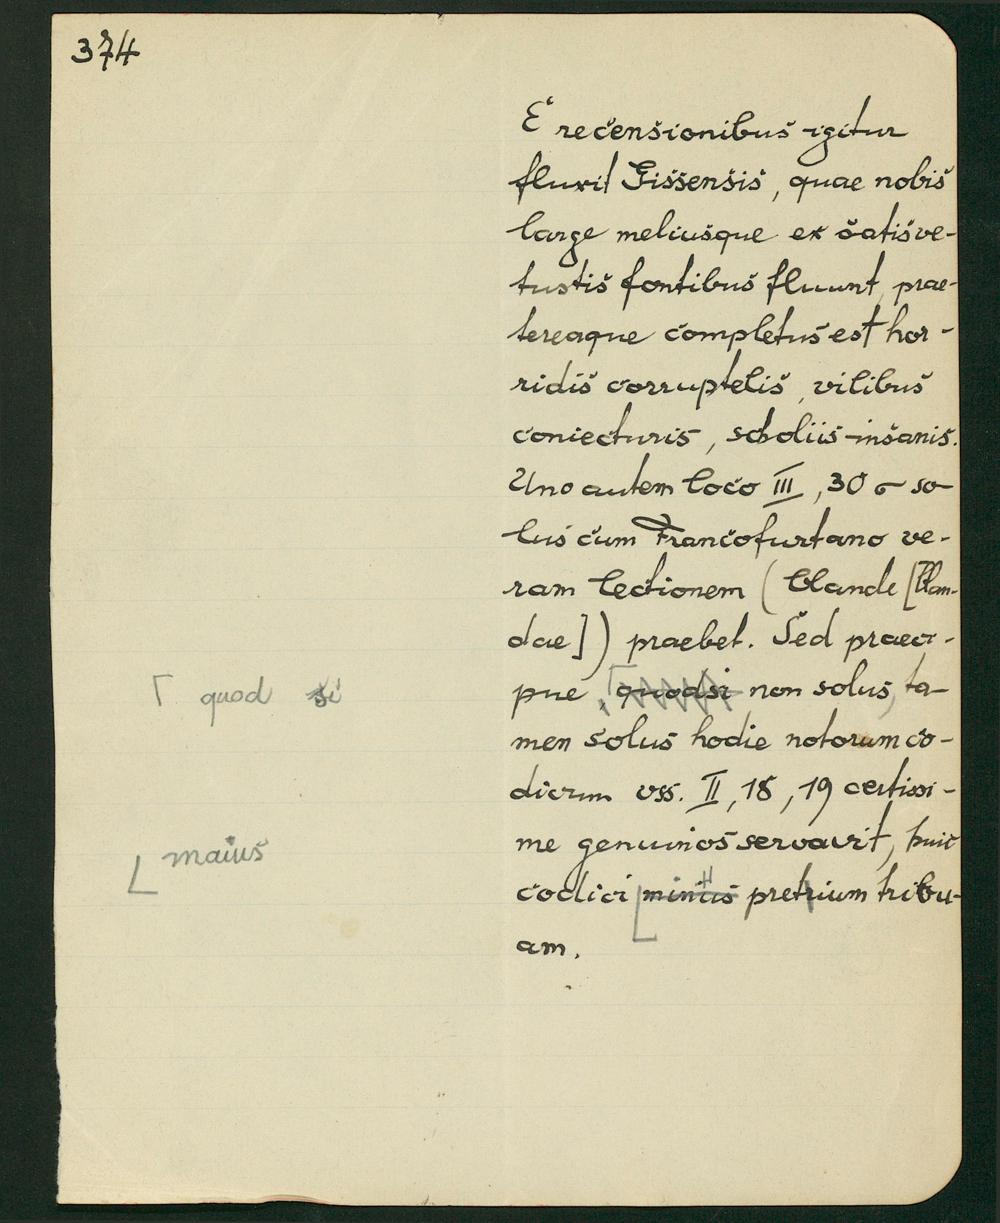 374
E recensionibus igitur
fluxit Gissensis, quae nobis
large meliusque ex satis ve-
tustis fontibus fluunt, prae-
tereaque completus est hor-
ridis corruptelis, vilibus
coniecturis, scholiis insanis.
Uno autem loco III, 30 σ so-
lus cum Francofurtano ve-
ram lectionem (blande [blan-
dae]) praebet. Sed praeci-
pue, quodsi non solus, ta-
⌈ quod si
men solus hodie notorum co-
dicum vss. II, 18, 19 certissi-
me genuinos servavit, huic
⌊ maius
codici minus pretium tribu-
am.